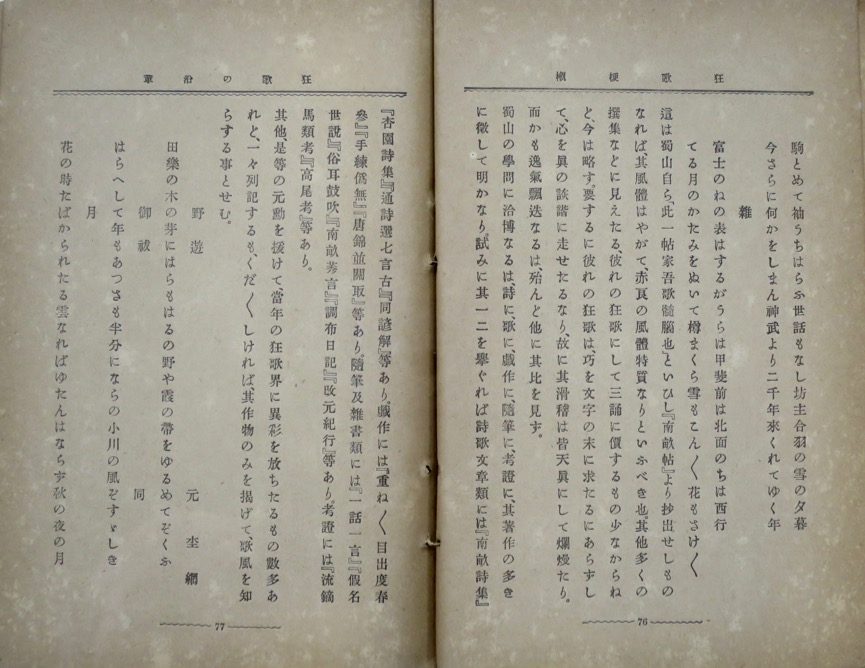 狂歌梗概
駒とめて袖うちはらふ世話もなし坊主合羽の雪の夕暮
今さらに何かをしまん神武より二千年來くれてゆく年
雜
富士のねの表はするがうらは甲斐前は北面のちは西行
てる月のかたみをぬいて樽まくら雪もこん〳〵花もさけ〳〵
這は蜀山自ら、『此一帖家吾歌髓腦也』といひし『南畝帖』より抄出せしもの
なれば、其風體はやがて、赤良の風體特質なりといふべき也。其他多くの
撰集などに見えたる、彼れの狂歌にして三誦に價するもの少なからね
ど、今は略す。要するに彼れの狂歌は、巧を文字の末に求たるにあらずし
て、心を眞の詼諧に走せたるなり、故に其滑稽は皆天眞にして爛熳たり。
而かも逸氣飄迭なるは、殆んど他に其比を見ず。
蜀山の學問に洽博なるは、詩に、歌に、戲作に、隨筆に、考證に、其著作の多き
に徵して明かなり。試みに其一二を擧ぐれば詩歌文章類には『南畝詩集』
76
狂歌の沿革
『杏園詩集』『通詩選七言古』『同諺解』等あり。戲作には『重ね〳〵目出度春
參』『手練僞無』『唐錦並關取』等あり。隨筆及雜書類には『一話一言』『假名
世說』『俗耳鼓吹』『南畝莠言』『調布日記』『改元紀行』等あり。考證には『流鏑
馬類考』『高尾考』等あり。
其他、是等の元勳を援けて、當年の狂歌界に異彩を放ちたるもの數多あ
れと、一々列記するも、くだ〳〵しければ、其作物のみを揭げて、歌風を知
らする事とせむ。
野遊　元杢網
田樂の木の芽にはらもはるの野や霞の帶をゆるめてぞくふ
御祓　同
はらへして年もあつさも半分にならの小川の風ぞすゞしき
月
花の時たばかられたる雲なればゆだんはならず秋の夜の月
77